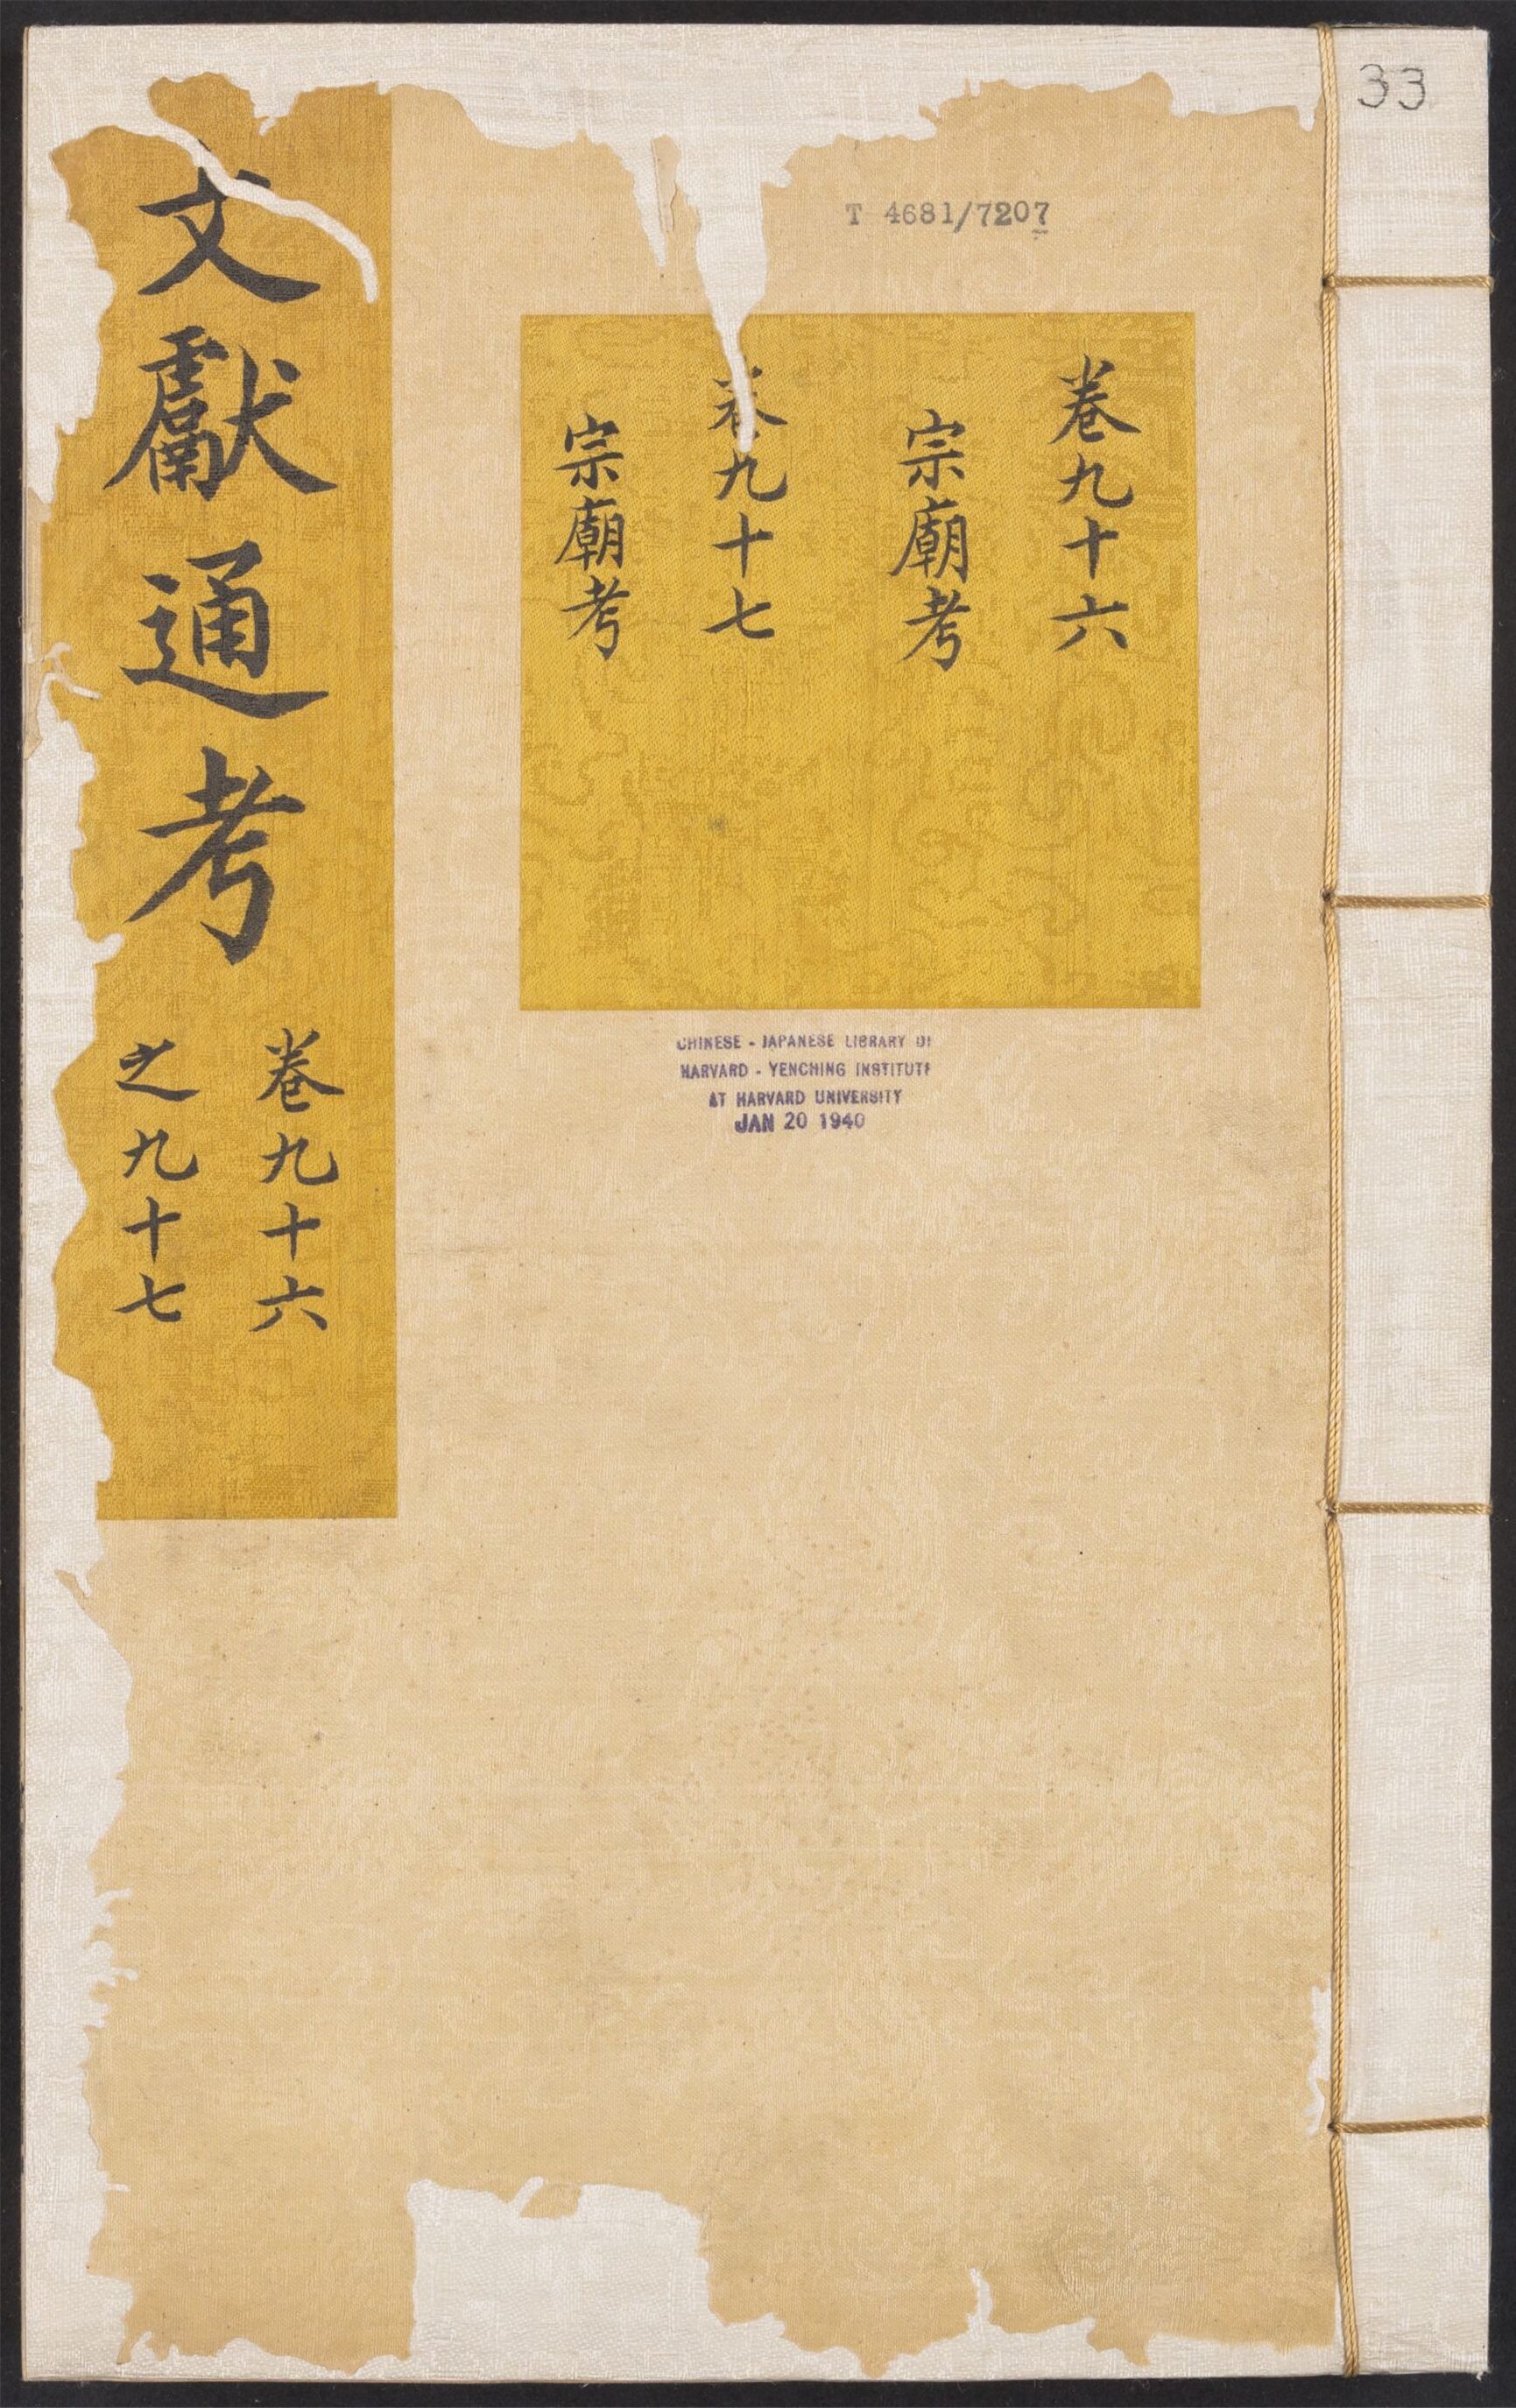 33
T 4681/7207
卷九十六
宗廟考
卷九十七
宗廟考
文獻通考
卷九十六
之九十七
CHINESE - JAPANESE LIBRARY OF
HARVARD - YENCHING INSTITUTE
AT HARVARD UNIVERSITY
JAN 20 1940